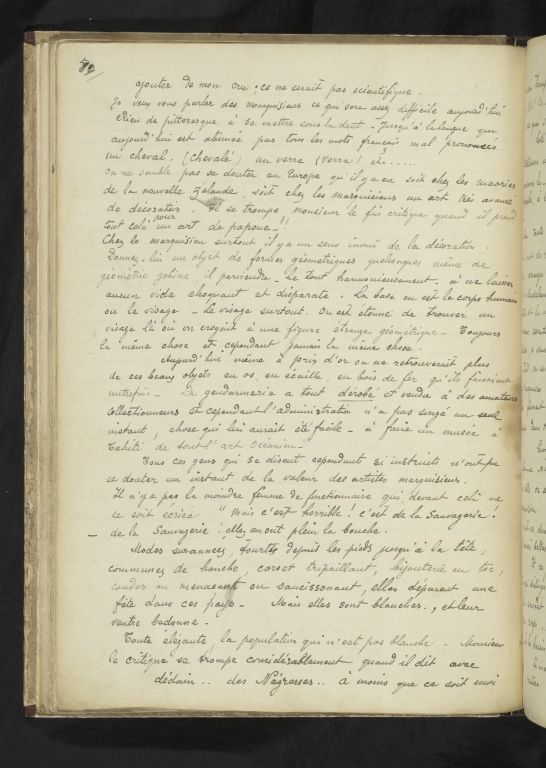 82
ajouter de mon cru ; ce ne serait pas scientifique.
Je veux vous parler des marquisiens ce qui sera assez difficile aujourd'hui
Rien de pittoresque à se mettre sous la dent. Jusqu'à la langue qui
aujourd'hui est abimée par tous les mots français mal prononcés.
Un cheval. (Chevalé) un verre (verra) etc.....
On ne semble pas se douter en Europe qu'il y a eu soit chez les maories
de la nouvelle Zelande, soit chez les marquisiens un art très avancé
de décoration. Il se trompe monsieur le fin critique quand il prend
tout celà pour un art de papoue_!!
Chez le marquisien surtout il y a un sens inouï de la décoration.
Donnez-lui un objet de formes géométriques quelconques même de
géométrie gobine il parviendra_ Le tout harmonieusement_ à ne laisser
aucun vide choquant et disparate. La base en est le corps humain
ou le visage_ Le visage surtout. On est étonné de trouver un
visage là où on croyait à une figure étrange géométrique_ Toujours
la même chose et cependant jamais la même chose.
Aujourd'hui même à prix d'or on ne retrouverait plus
de ces beaux objets en os, en écaille, en bois de fer qu'ils faisaient
autrefois_ La gendarmerie a tout dérobé et vendu à des amateurs
collectionneurs et cependant l'administration n'a pas songé un seul
instant, chose qui lui aurait été facile_ à faire un musée à
Tahiti de tout l'art Océanien_
Tous ces gens qui se disent cependant si instruits n'ont pu
se douter un instant de la valeur des artistes marquisiens.
Il n'y a pas la moindre femme de fonctionnaire qui devant celà ne
se soit écriée "Mais c'est horrible! c'est de la Sauvagerie!
_ de la Sauvagerie! elles en ont plein la bouche.
Modes surannées, tourtes depuis les pieds jusqu'à la tête,
communes de hanche, corset tripaillant, bijouterie en toc,
coudes ou menaçant ou saucissonant, elles déparent une
fête dans ces pays_ Mais elles sont blanches., et leur
ventre bedonne_
Toute élégante, la population qui n'est pas blanche_ Monsieur
le critique se trompe considérablement quand il dit avec
dédain .. des Négresses.. à moins que ce soit moi